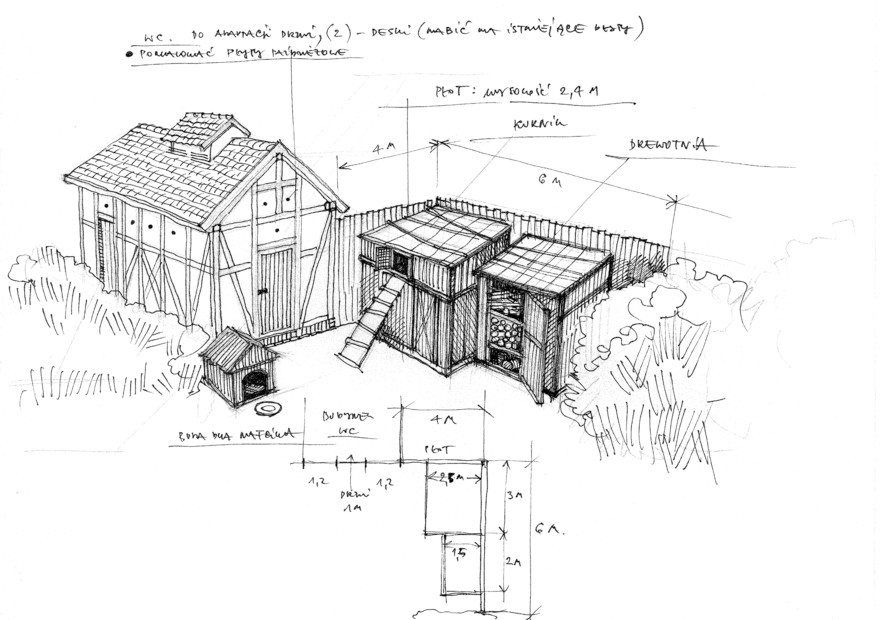 WC. DO ADAPTACJI DRZWI, (2) – DESKI (NABIĆ NA ISTNIEJĄCE
• POMALOWAĆ PŁYTY
PŁOT: WYSOKOŚĆ 2,4 M
KURNIK
DREWUTNIA
4 M
6 M
BUDYNEK
WC
4 M
BUDA DLA
PŁOT
1,2
1,2
2,5 M
DRZWI
1M
3M
6 M.
1,5
2M